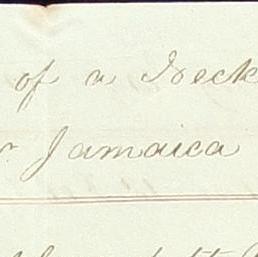 of a Deck
r Jamaica